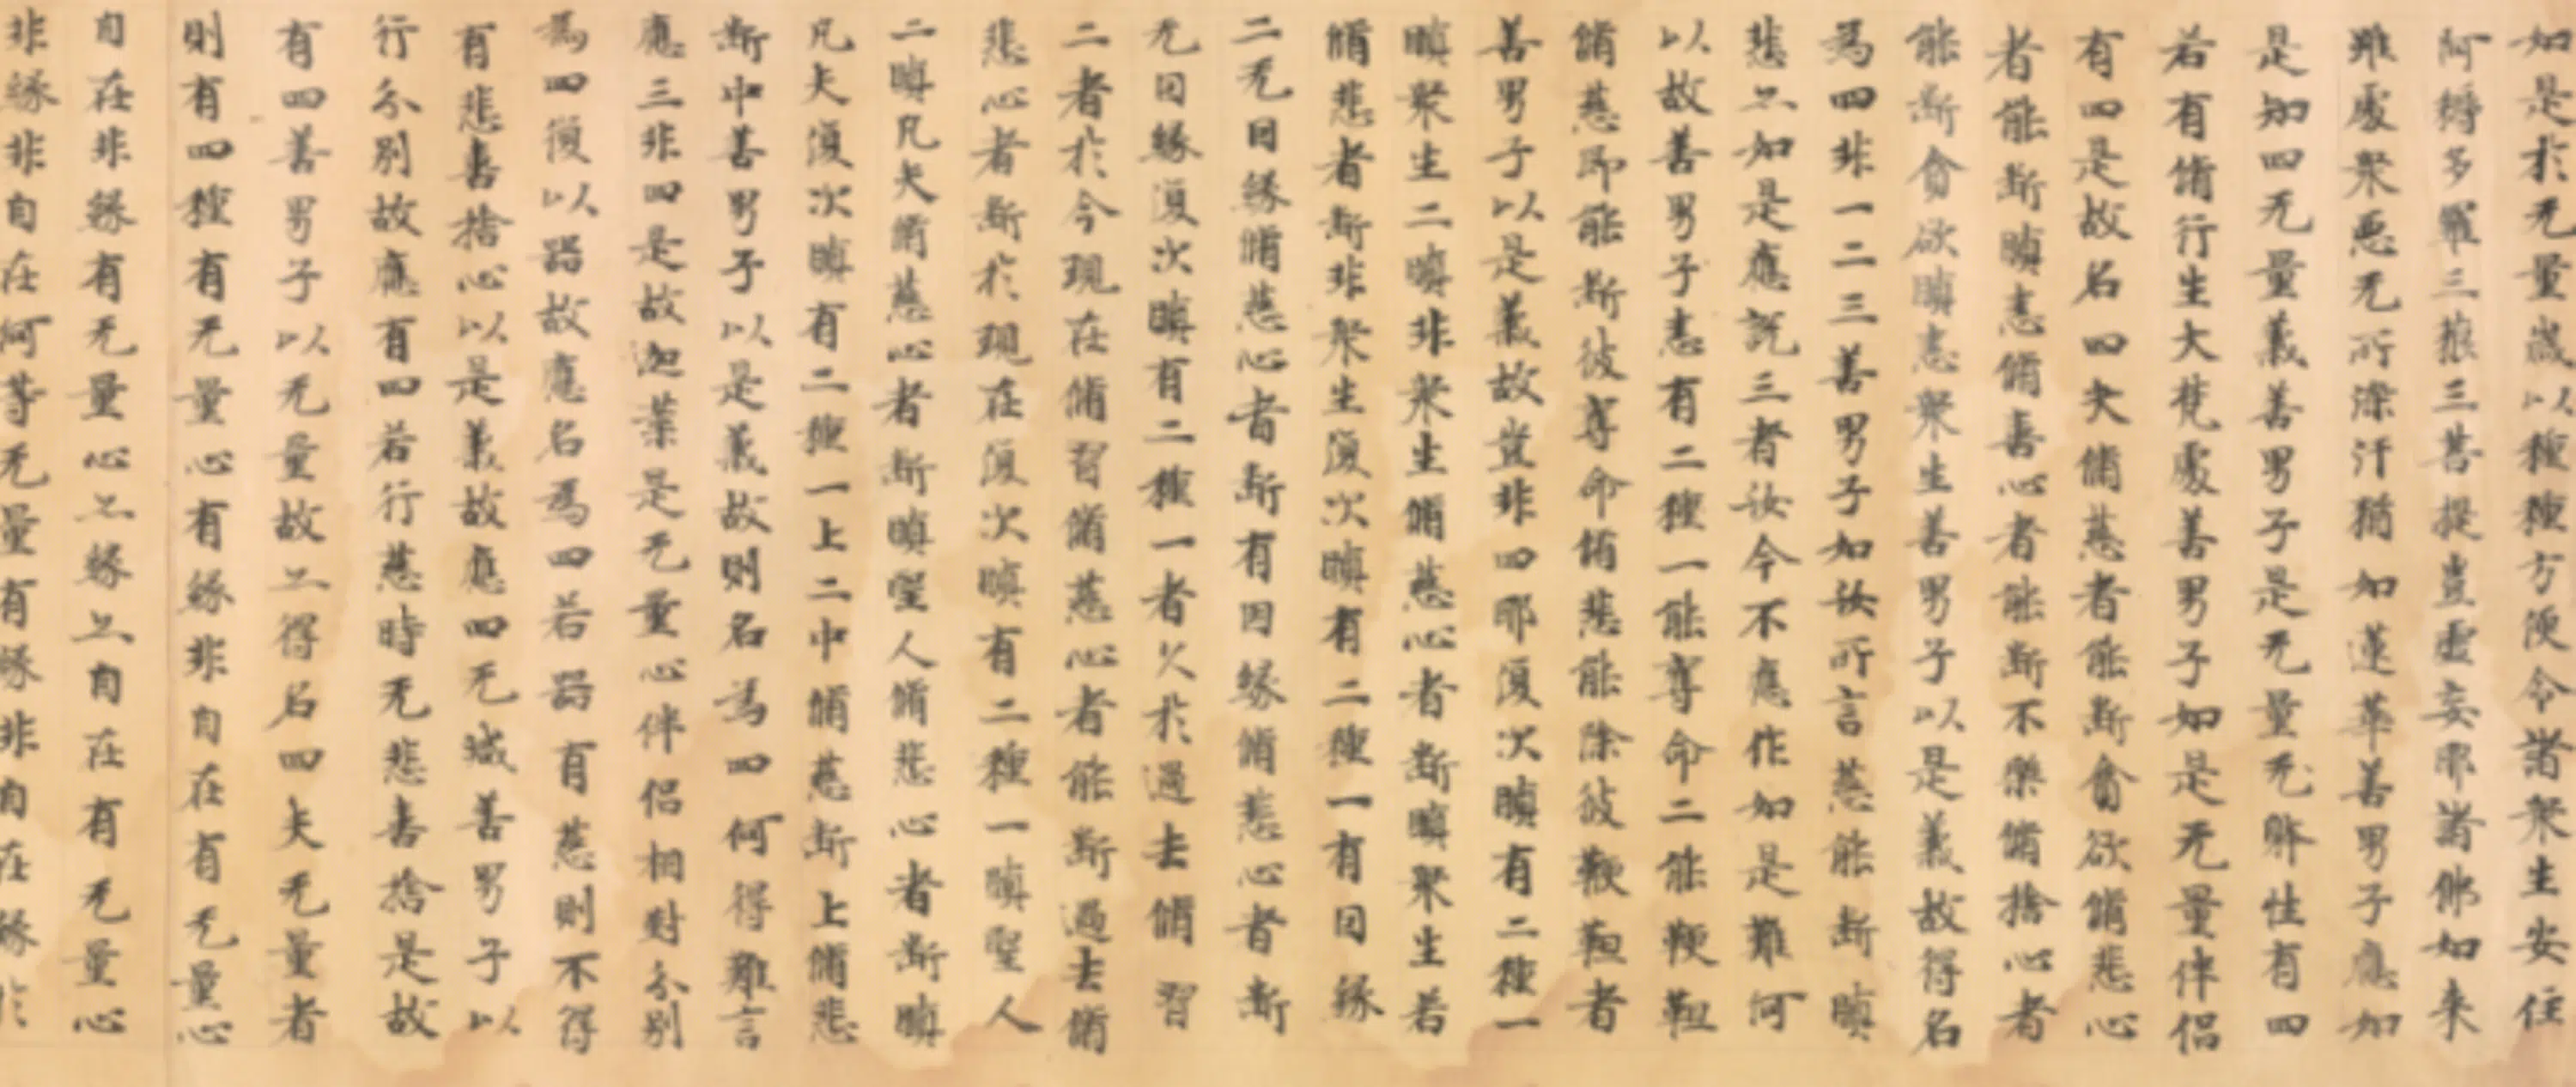 如是於无量歲以種種方便令諸衆生安住
阿耨多羅三藐三菩提豈虛妄耶諸佛如来
雖處衆惡无所染汙猶如蓮華善男子應如
是知四无量義善男子是无量无 性有四
若有脩行生大梵處善男子如是无量伴侣
有四是故名四夫脩慈者能断貪欲脩悲心
者能断瞋恚脩喜心者能断不樂脩捨心者
能断貪欲瞋恚衆生善男子以是義故得名
爲四非一二三善男子如汝所言慈能断瞋
悲亦如是應説三者汝今不應作如是難何
以故善男子恚有二種一能奪命二能鞭靼
脩慈即能断彼奪命脩悲能除彼鞭靼者
善男子以是義故豈非四耶復次瞋有二種一
瞋衆生二瞋非衆生脩慈心者断瞋衆生若
脩悲者断非衆生復次瞋有二種一有因緣
二无因緣脩慈心者断有因緣脩悲心者断
无因緣復次瞋有二種一者久於過去脩習
二者於今現在脩習脩慈心者能断過去脩
悲心者断於現在復次瞋有二種一瞋聖人
二瞋凡夫脩慈心者断瞋聖人脩悲心者断瞋
凡夫復次瞋有二種一上二中脩慈断上脩悲
断中善男子以是義故則名爲四何得難言
應三非四是故迦葉是无量心伴侣相對分别
爲四復以器故應名爲四若器有慈則不得
有悲喜捨心以是義故應四无減善男子以
行分别故應有四若行慈時无悲喜捨是故
有四善男子以无量故亦得名四夫无量者
則有四種有无量心有緣非自在有无量心
自在非緣有无量心亦緣亦自在有无量心
非緣非自在何等无量有緣非自在緣於